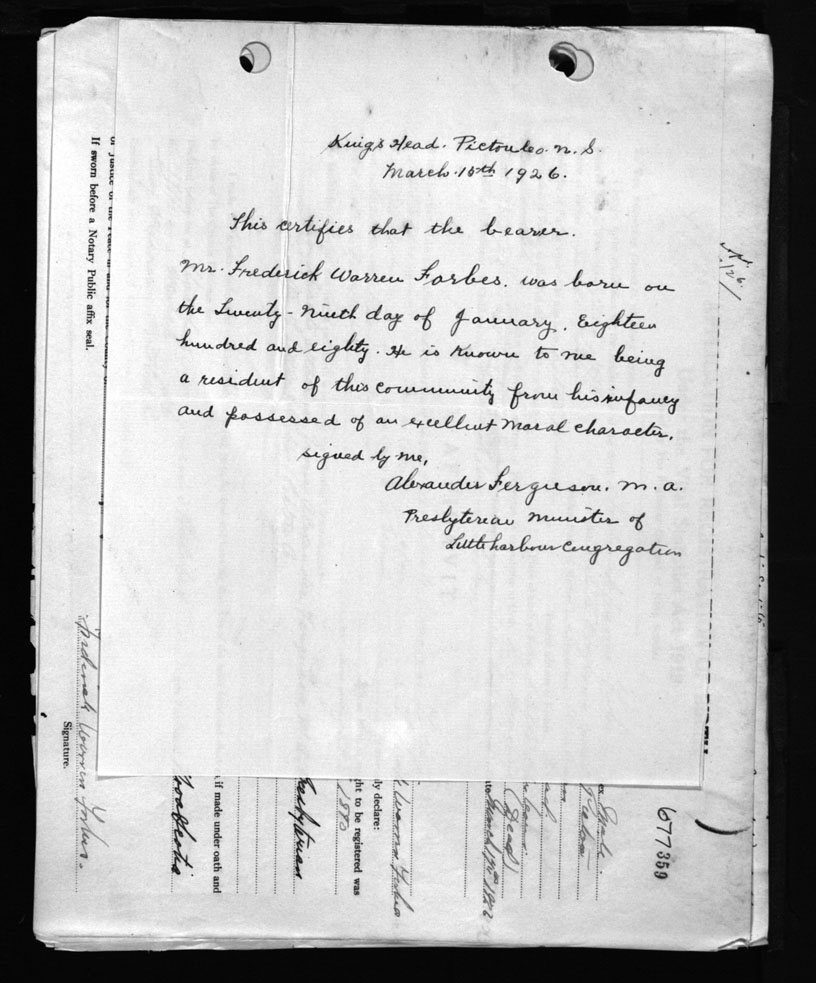 King's Head. Pictou Co. N. S.
March. 15th 1926.
This certifies that the bearer.
Mr. Frederick Warren Forbes. was born on
the Twenty-Ninth day of January, Eighteen
hundred and eighty. He is known to me being
a resident of this community from his infancy
and possessed of an excellent moral character.
signed by me,
Alexander Ferguson. M. A.
Presbyterian Minister of
Little harbour Congregation
If sworn before a Notary Public affix seal.
Frederick Warren Forbes.
Signature.
if made under oath and
Presbyterian
ght to be registered was
1880
ly declare:
Warren Forbes
(Dead)
677359